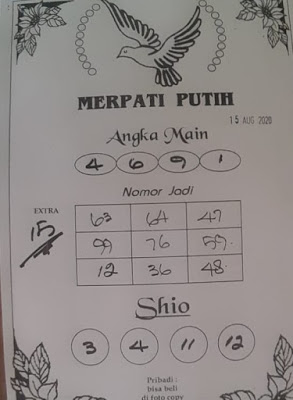 MERPATI PUTIH
15 AUG 2020
Angka Main
4 6 9 1
Nomor Jadi
EXTRA
15
63 64 47
99 76 59
12 36 48
Shio
3 4 11 12
Pribadi :
bisa beli
di foto copy